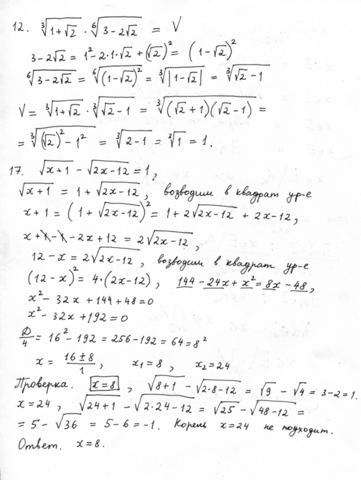 12. ∛(1+√2) · ⁶√(3-2√2) = V
3-2√2 = 1² - 2·1·√2 + (√2)² = (1-√2)²
⁶√(3-2√2) = ⁶√((1-√2)²) = ∛|1-√2| = ∛(√2-1)
V = ∛(1+√2) · ∛(√2-1) = ∛((√2+1)(√2-1)) =
= ∛((√2)²-1²) = ∛(2-1) = ∛1 = 1.
17. √(x+1) - √(2x-12) = 1,
√(x+1) = 1 + √(2x-12), возводим в квадрат ур-е
x+1 = (1+√(2x-12))² = 1+2√(2x-12) + 2x-12,
x+1-1-2x+12 = 2√(2x-12),
12-x = 2√(2x-12), возводим в квадрат ур-е
(12-x)² = 4·(2x-12), 144-24x+x² = 8x-48,
x² - 32x + 144 + 48 = 0
x² - 32x + 192 = 0
Д/4 = 16² - 192 = 256 - 192 = 64 = 8²
x = (16±8)/1, x₁ = 8, x₂ = 24
Проверка. x=8, √(8+1) - √(2·8-12) = √9 - √4 = 3-2 = 1.
x=24, √(24+1) - √(2·24-12) = √25 - √(48-12) =
= 5 - √36 = 5-6 = -1. Корень x=24 не подходит.
Ответ. x=8.